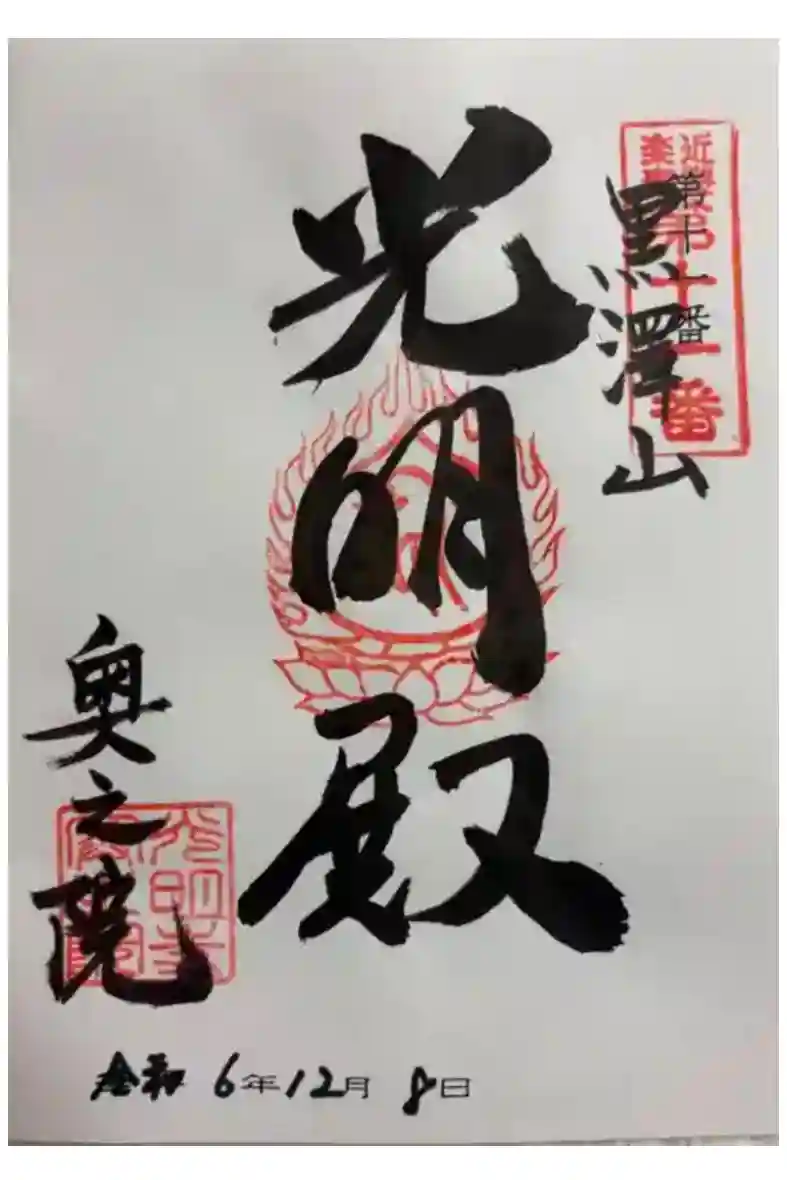 第十一番
第十一番
黒澤山
光明殿
奥之院
令和 6年12月 8日